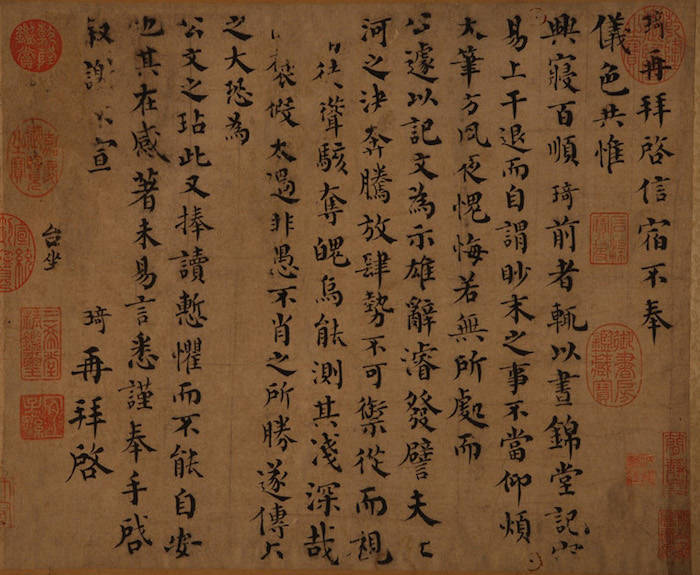 琦再拜啓信宿不奉
儀色共惟
興寢百順琦前者輒以晝錦堂記容
易上干退而自謂眇末之事不當仰煩
大筆方夙夜愧悔若無所處而
公遽以記文為示雄辭濬發譬夫
河之決奔騰放肆勢不可禦從而視
徒聳駭奪魄烏能測其淺深哉
褒假太過非愚不肖之所勝遂傳
之大恐為
公文之玷此又捧讀慙懼而不能自安
也其在感著未易言悉謹奉手啓
叙謝不宣
琦再拜啓
台坐